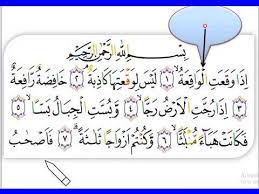 بِسْمِ اللّٰهِ الرَّحْمٰنِ الرَّحِيْمِ
اِذَا وَقَعَتِ الْوَاقِعَةُ ۙ ١ لَيْسَ لِوَقْعَتِهَا كَاذِبَةٌ ۘ ٢ خَافِضَةٌ رَّافِعَةٌ
٣ اِذَا رُجَّتِ الْاَرْضُ رَجًّا ۙ ٤ وَّبُسَّتِ الْجِبَالُ بَسًّا ۙ ٥
فَكَانَتْ هَبَاۤءً مُّنْۢبَثًّا ۙ ٦ وَّكُنْتُمْ اَزْوَاجًا ثَلٰثَةً ۗ ٧ فَاَصْحٰبُ